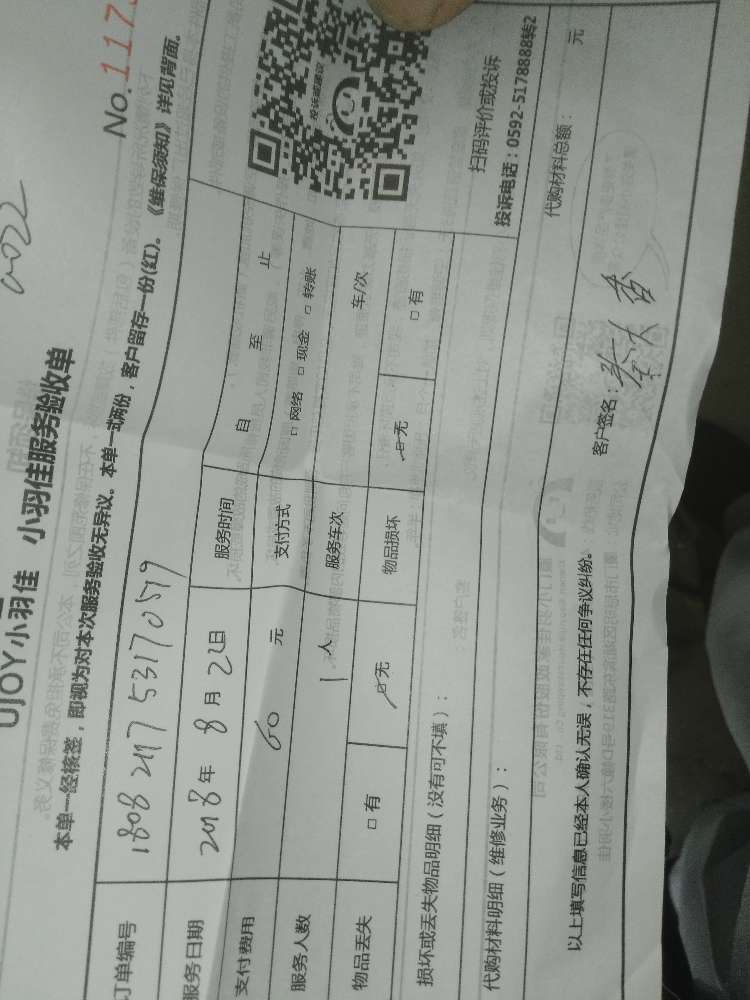 No.1173
UJOY小羽佳 小羽佳服务验收单
本单一经核签，即视为对本次服务验收无异议。本单一式两份，客户留存一份(红)。《维保须知》详见背面。
订单编号
服务日期 2018年 8月 2日 服务时间 自 至 止
支付费用 60 元 支付方式 □ 网络 □ 现金 □ 转账
服务人数 1 人 服务车次 车/次
物品丢失 □ 有 □ 无 物品损坏 □ 无 □ 有
损坏或丢失物品明细（没有可不填）：
投诉或建议
扫码评价或投诉
投诉电话：0592-5178888转2
代购材料明细（维修业务）：
代购材料总额： 元
以上填写信息已经本人确认无误，不存在任何争议纠纷。
客户签名：